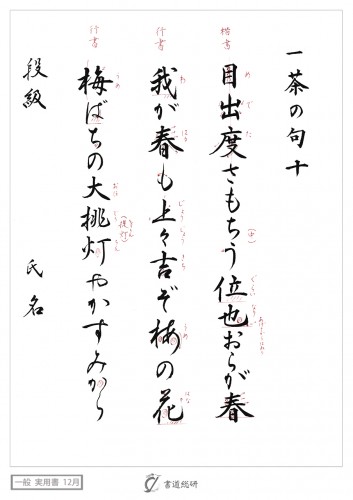 一茶の句十
楷書
目出度さもちう位也おらが春
(中)
行書
我が春も上々吉ぞ梅の花
行書
梅ばちの大挑灯やかすみから
(提灯)
段級 氏名
一般 実用書 12月
書道総研